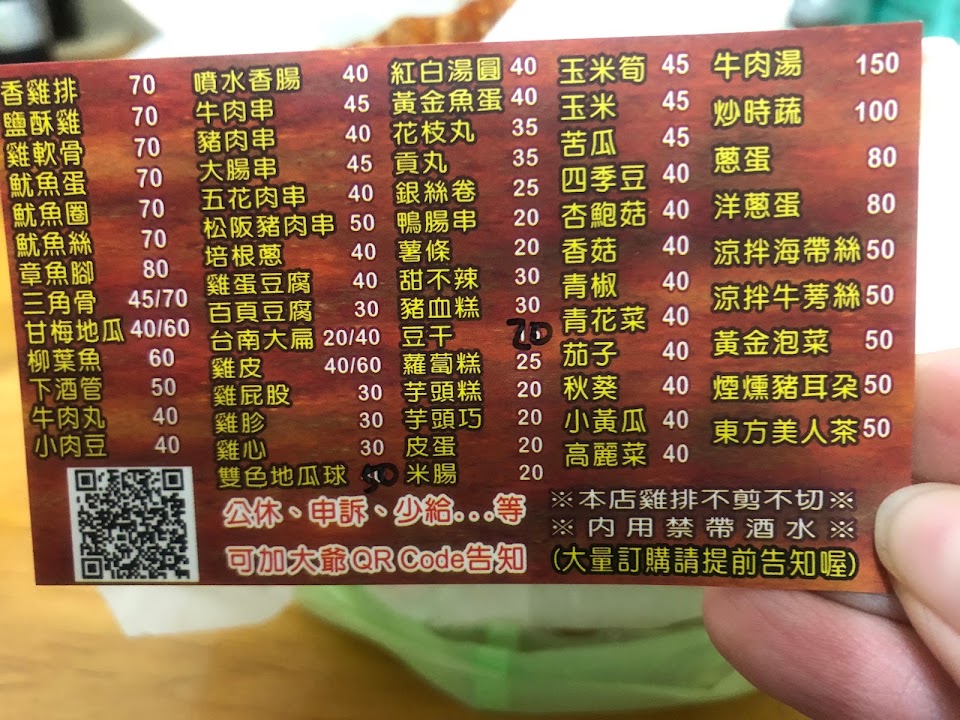 香雞排 70
鹽酥雞 70
雞軟骨 70
魷魚蛋 70
魷魚圈 70
魷魚絲 70
章魚腳 80
三角骨 45/70
甘梅地瓜 40/60
柳葉魚 60
下酒管 50
牛肉丸 40
小肉豆 40
噴水香腸 40
牛肉串 45
豬肉串 40
大腸串 45
五花肉串 40
松阪豬肉串 50
培根蔥 40
雞蛋豆腐 40
百頁豆腐 30
台南大扁 20/40
雞皮 40/60
雞屁股 30
雞胗 30
雞心 30
雙色地瓜球 50
紅白湯圓 40
黃金魚蛋 40
花枝丸 35
貢丸 35
銀絲卷 25
鴨腸串 20
薯條 20
甜不辣 30
豬血糕 30
豆干 20
蘿蔔糕 25
芋頭糕 20
芋頭巧 20
皮蛋 20
米腸 20
玉米筍 45
玉米 45
苦瓜 45
四季豆 40
杏鮑菇 40
香菇 40
青椒 40
青花菜 40
茄子 40
秋葵 40
小黃瓜 40
高麗菜 40
牛肉湯 150
炒時蔬 100
蔥蛋 80
洋蔥蛋 80
涼拌海帶絲 50
涼拌牛蒡絲 50
黃金泡菜 50
煙燻豬耳朵 50
東方美人茶 50
公休、申訴、少給...等
可加大爺QR Code告知
※本店雞排不剪不切※
※內用禁帶酒水※
(大量訂購請提前告知喔)